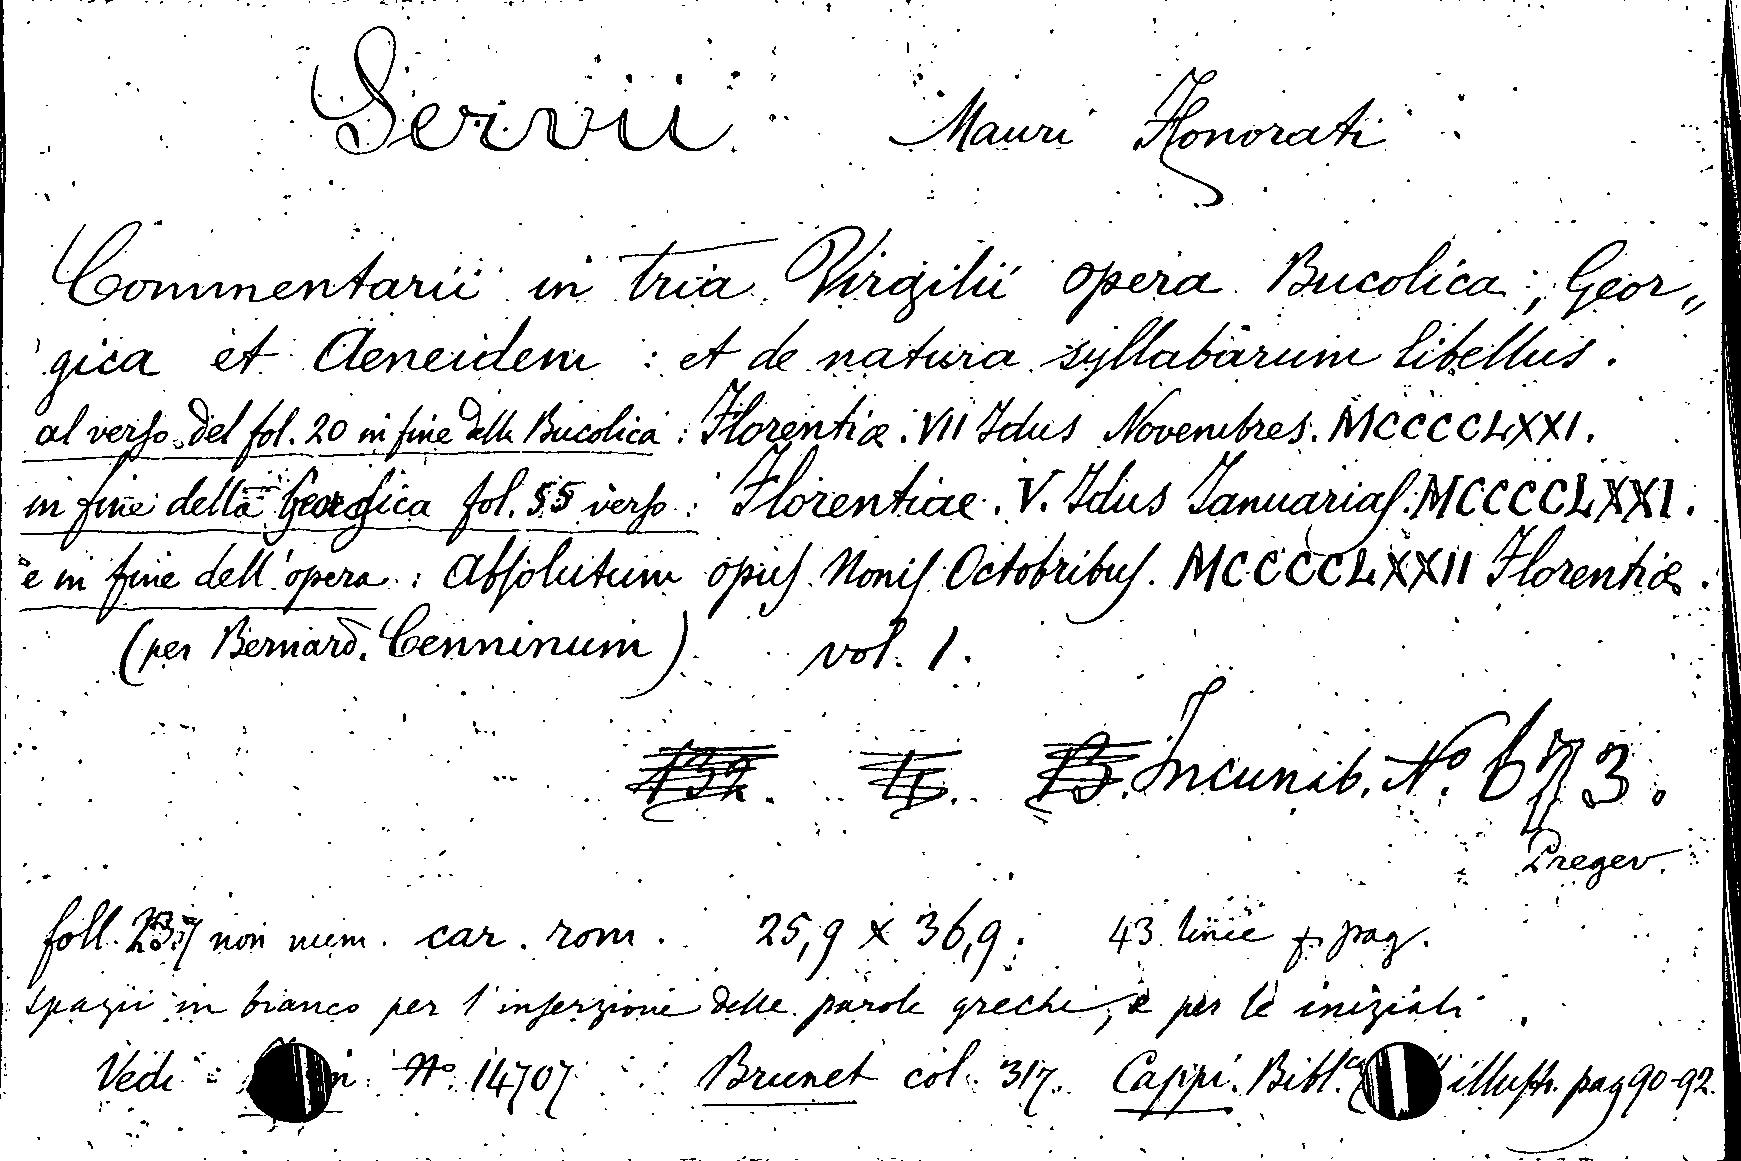 Servii Mauri Honorati
Commentarii in tria Virgilii opera Bucolica, Geor„
gica et Aeneidem : et de natura syllabarum libellus.
al verso del fol. 20 in fine della Bucolica : Florentiæ. VII Idus Novembres. MCCCCLXXI.
in fine della Georgica fol. 55 verso : Florentiae. V. Idus Ianuarias. MCCCCLXXI.
e in fine dell'opera : Absolutum opus Nonis Octobribus. MCCCCLXXII Florentiæ.
(per Bernard. Cenninum) vol. 1.
Incunab. Nº 673.
Pregev.
foll. 237 non num. car. rom. 25,9 x 36,9. 43 linee p. pag.
spazii in bianco per l'inserzione delle parole greche, e per le iniziali.
Vedi : Nº 14707 Brunet col. 317. Cappi. Bibl. illustr. pag 90-92.